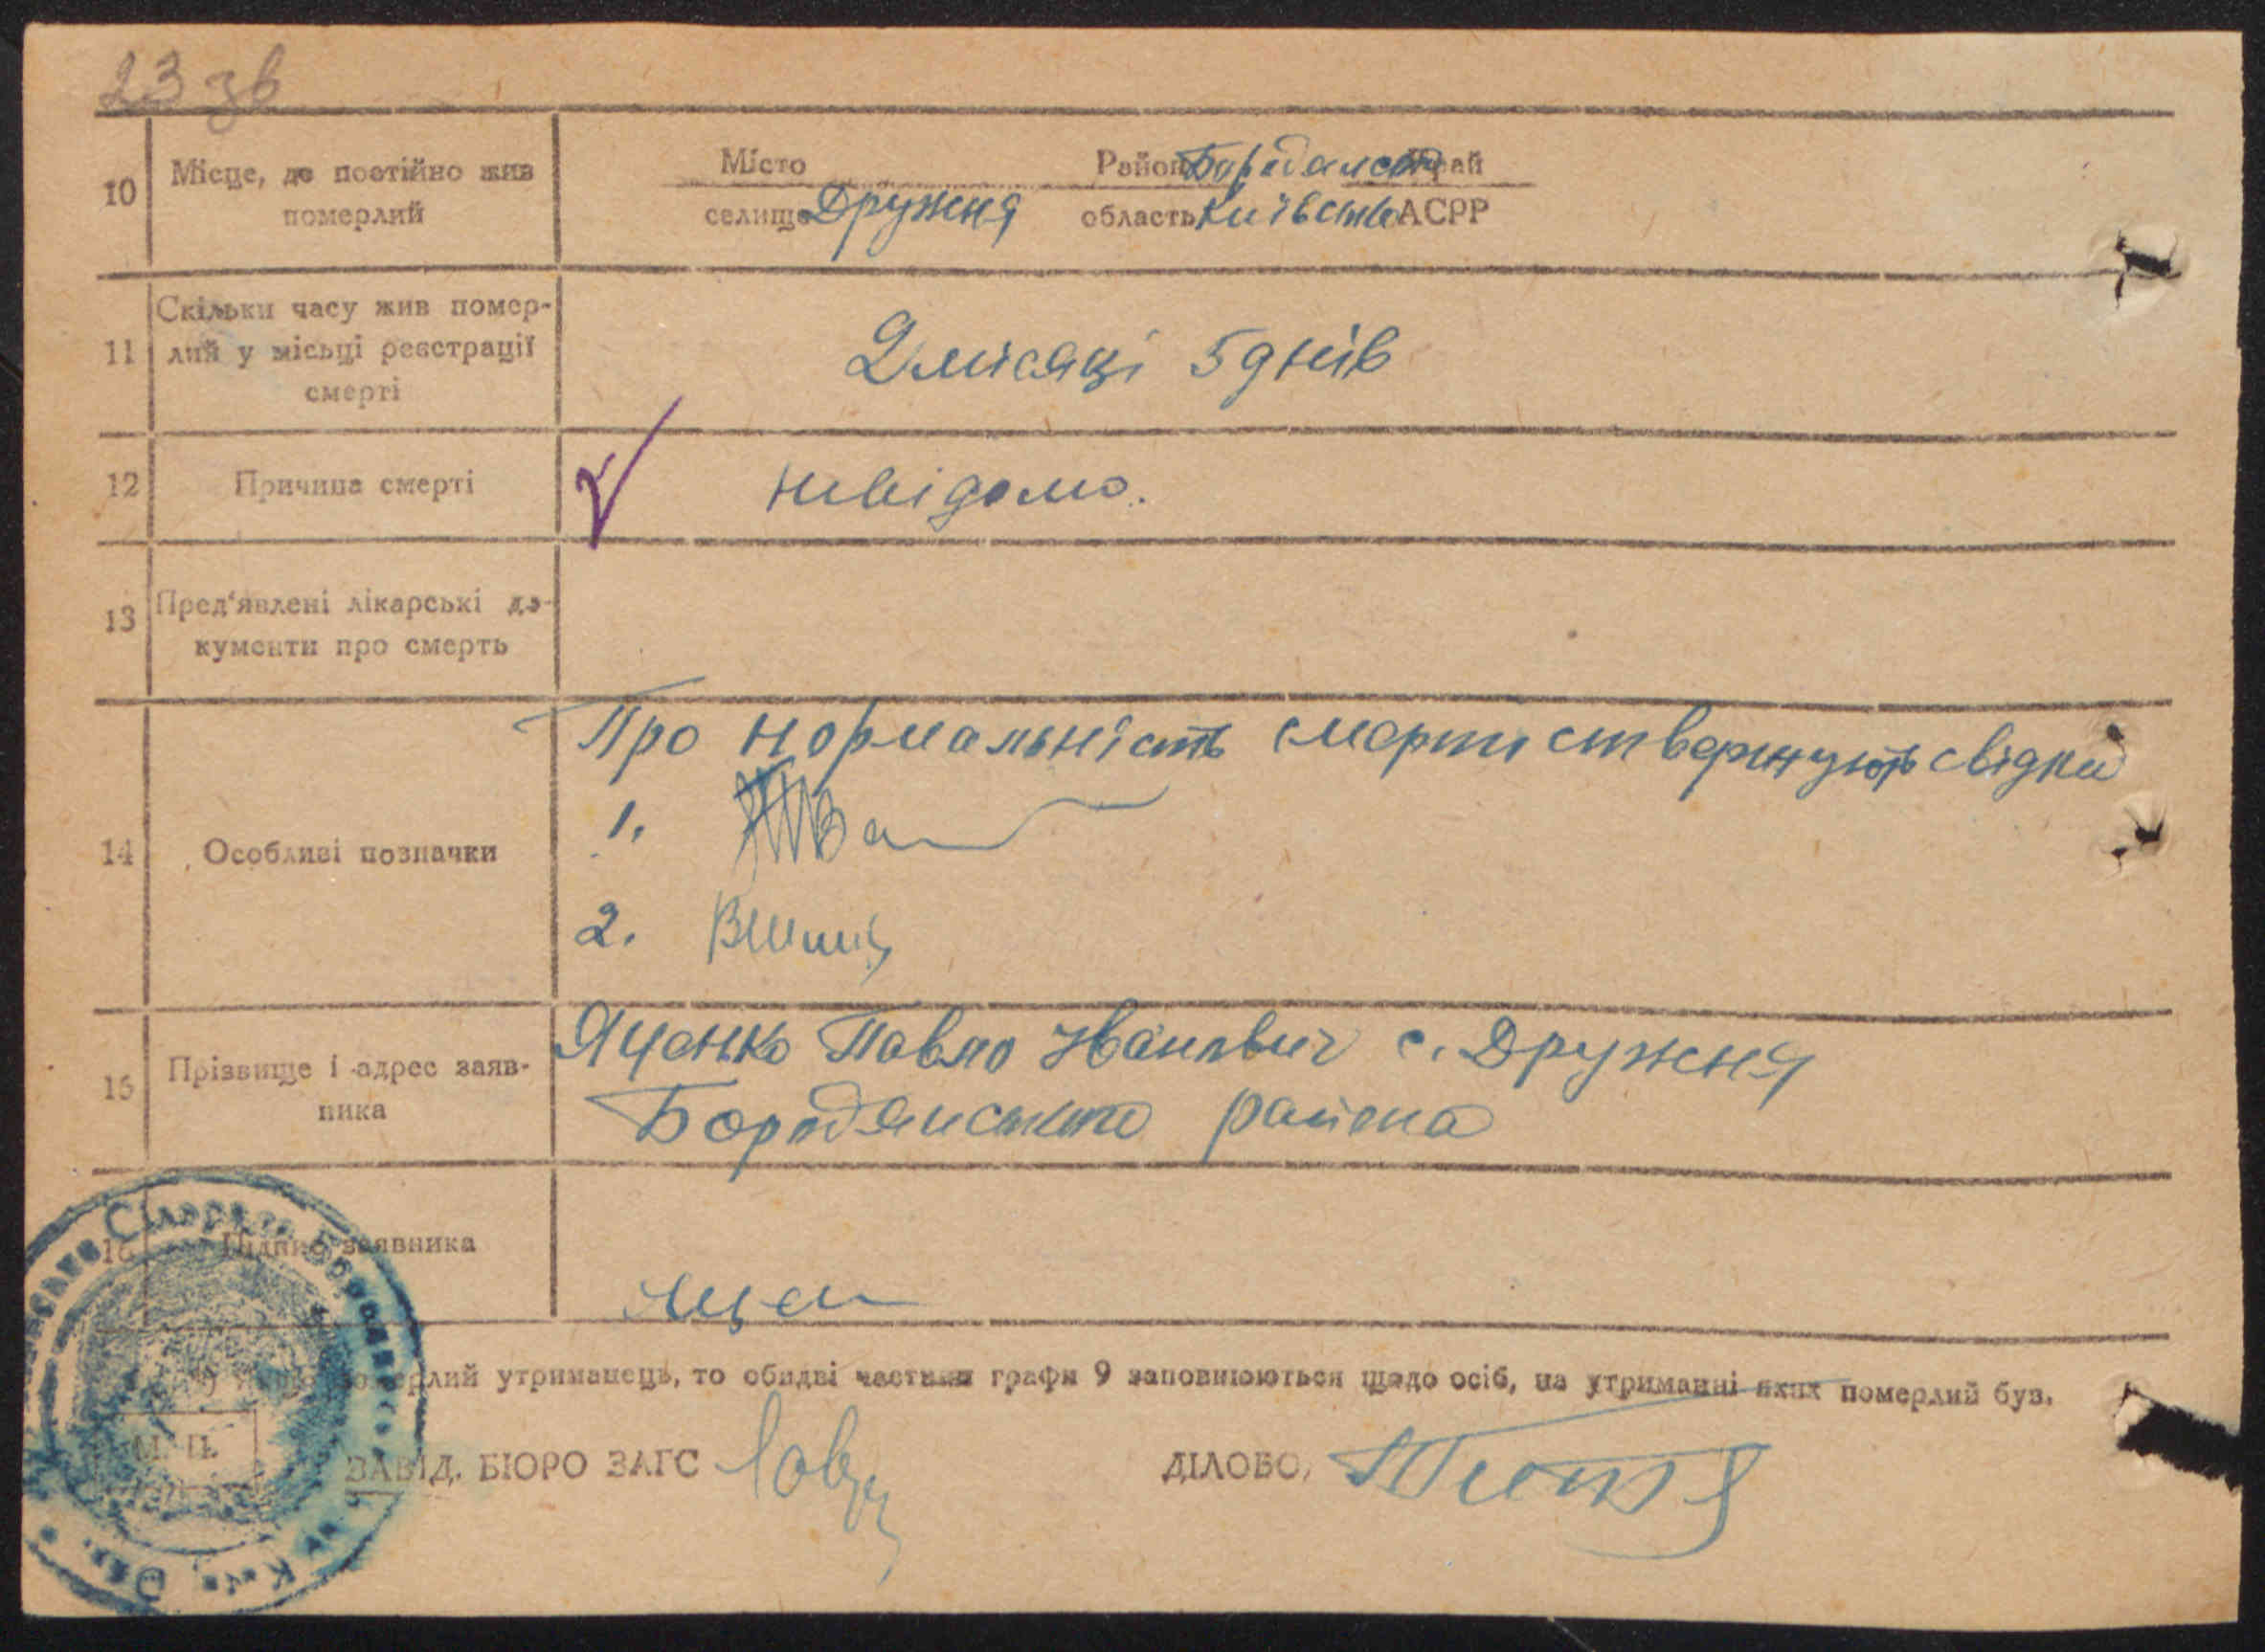 23 зв
10 Місце, де постійно жив Місто Район Бородянськ край
померлий селище Дружня область Київська АСРР
Скільки часу жив помер-
11 лий у місьці реєстрації 2 місяці 5 днів
смерті
12 Причина смерті невідомо.
13 Пред'явлені лікарські до-
кументи про смерть
Про нормальність смерти ствержують свідки
1.
14 Особливі позначки
2.
Яценко Павло Іванович с. Дружня
15 Прізвище і адрес заяв-
ника Бородянського района
16 Підпис заявника
Яцен
померлий утриманець, то обидві частини графи 9 заповнюються щодо осіб, на утриманні яких померлий був.
М. П.
ЗАВІД. БЮРО ЗАГС ДІЛОВО,